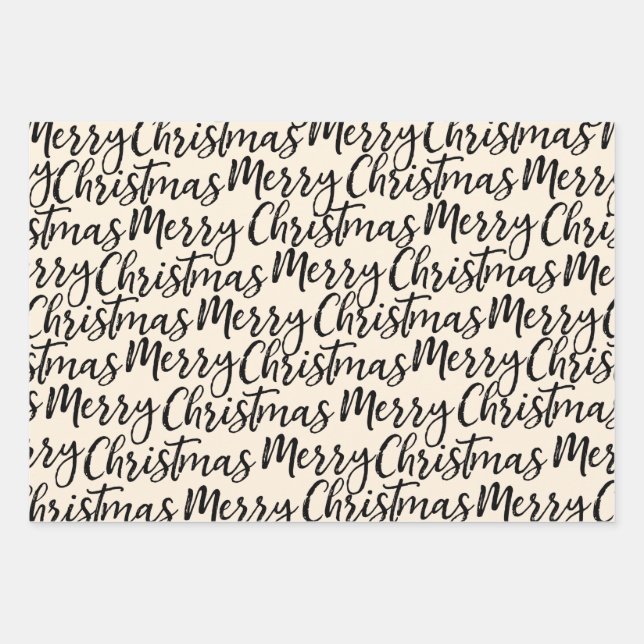 Merry Christmas Merry Christmas M
y Christmas Merry Christmas Merry
stmas Merry Christmas Merry Chris
rry Christmas Merry Christmas Mer
Christmas Merry Christmas Merry C
stmas Merry Christmas Merry Christmas
s Merry Christmas Merry Christmas
rry Christmas Merry Christmas Mer
Christmas Merry Christmas Merry C